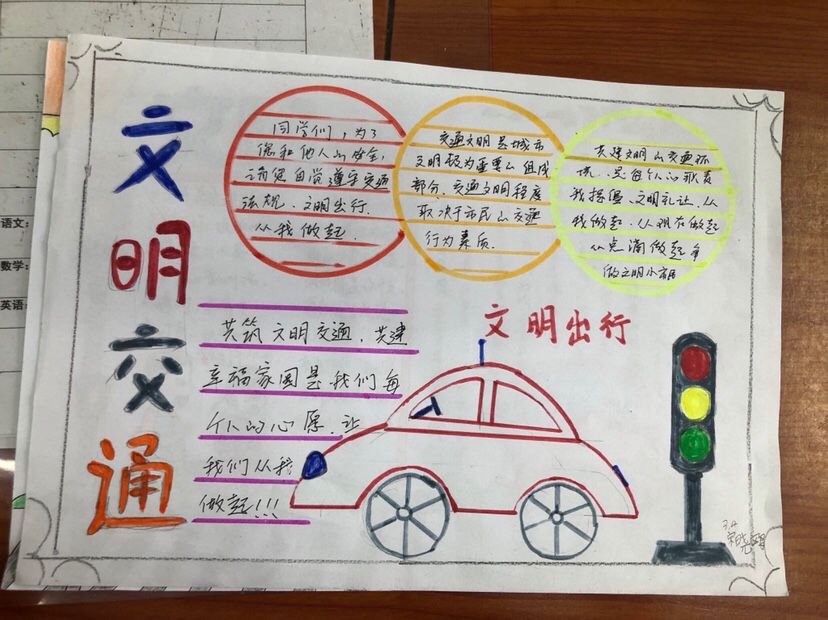 文明交通
同学们,为了
您和他人的安全,
请您自觉遵守交通
法规、文明出行.
从我做起.
交通文明是城市
文明极为重要的组成
部分、交通文明程度
取决于市民的交通
行为素质.
共建文明的交通环
境、是每个人的
文明礼让、从
我做起、从现在做起
从点滴做起争
做文明小市民
共筑文明交通、共建
幸福家园是我们每
个人的心愿、让
我们从我
做起!!!
文明出行
语文:
数学:
英语:
3.4